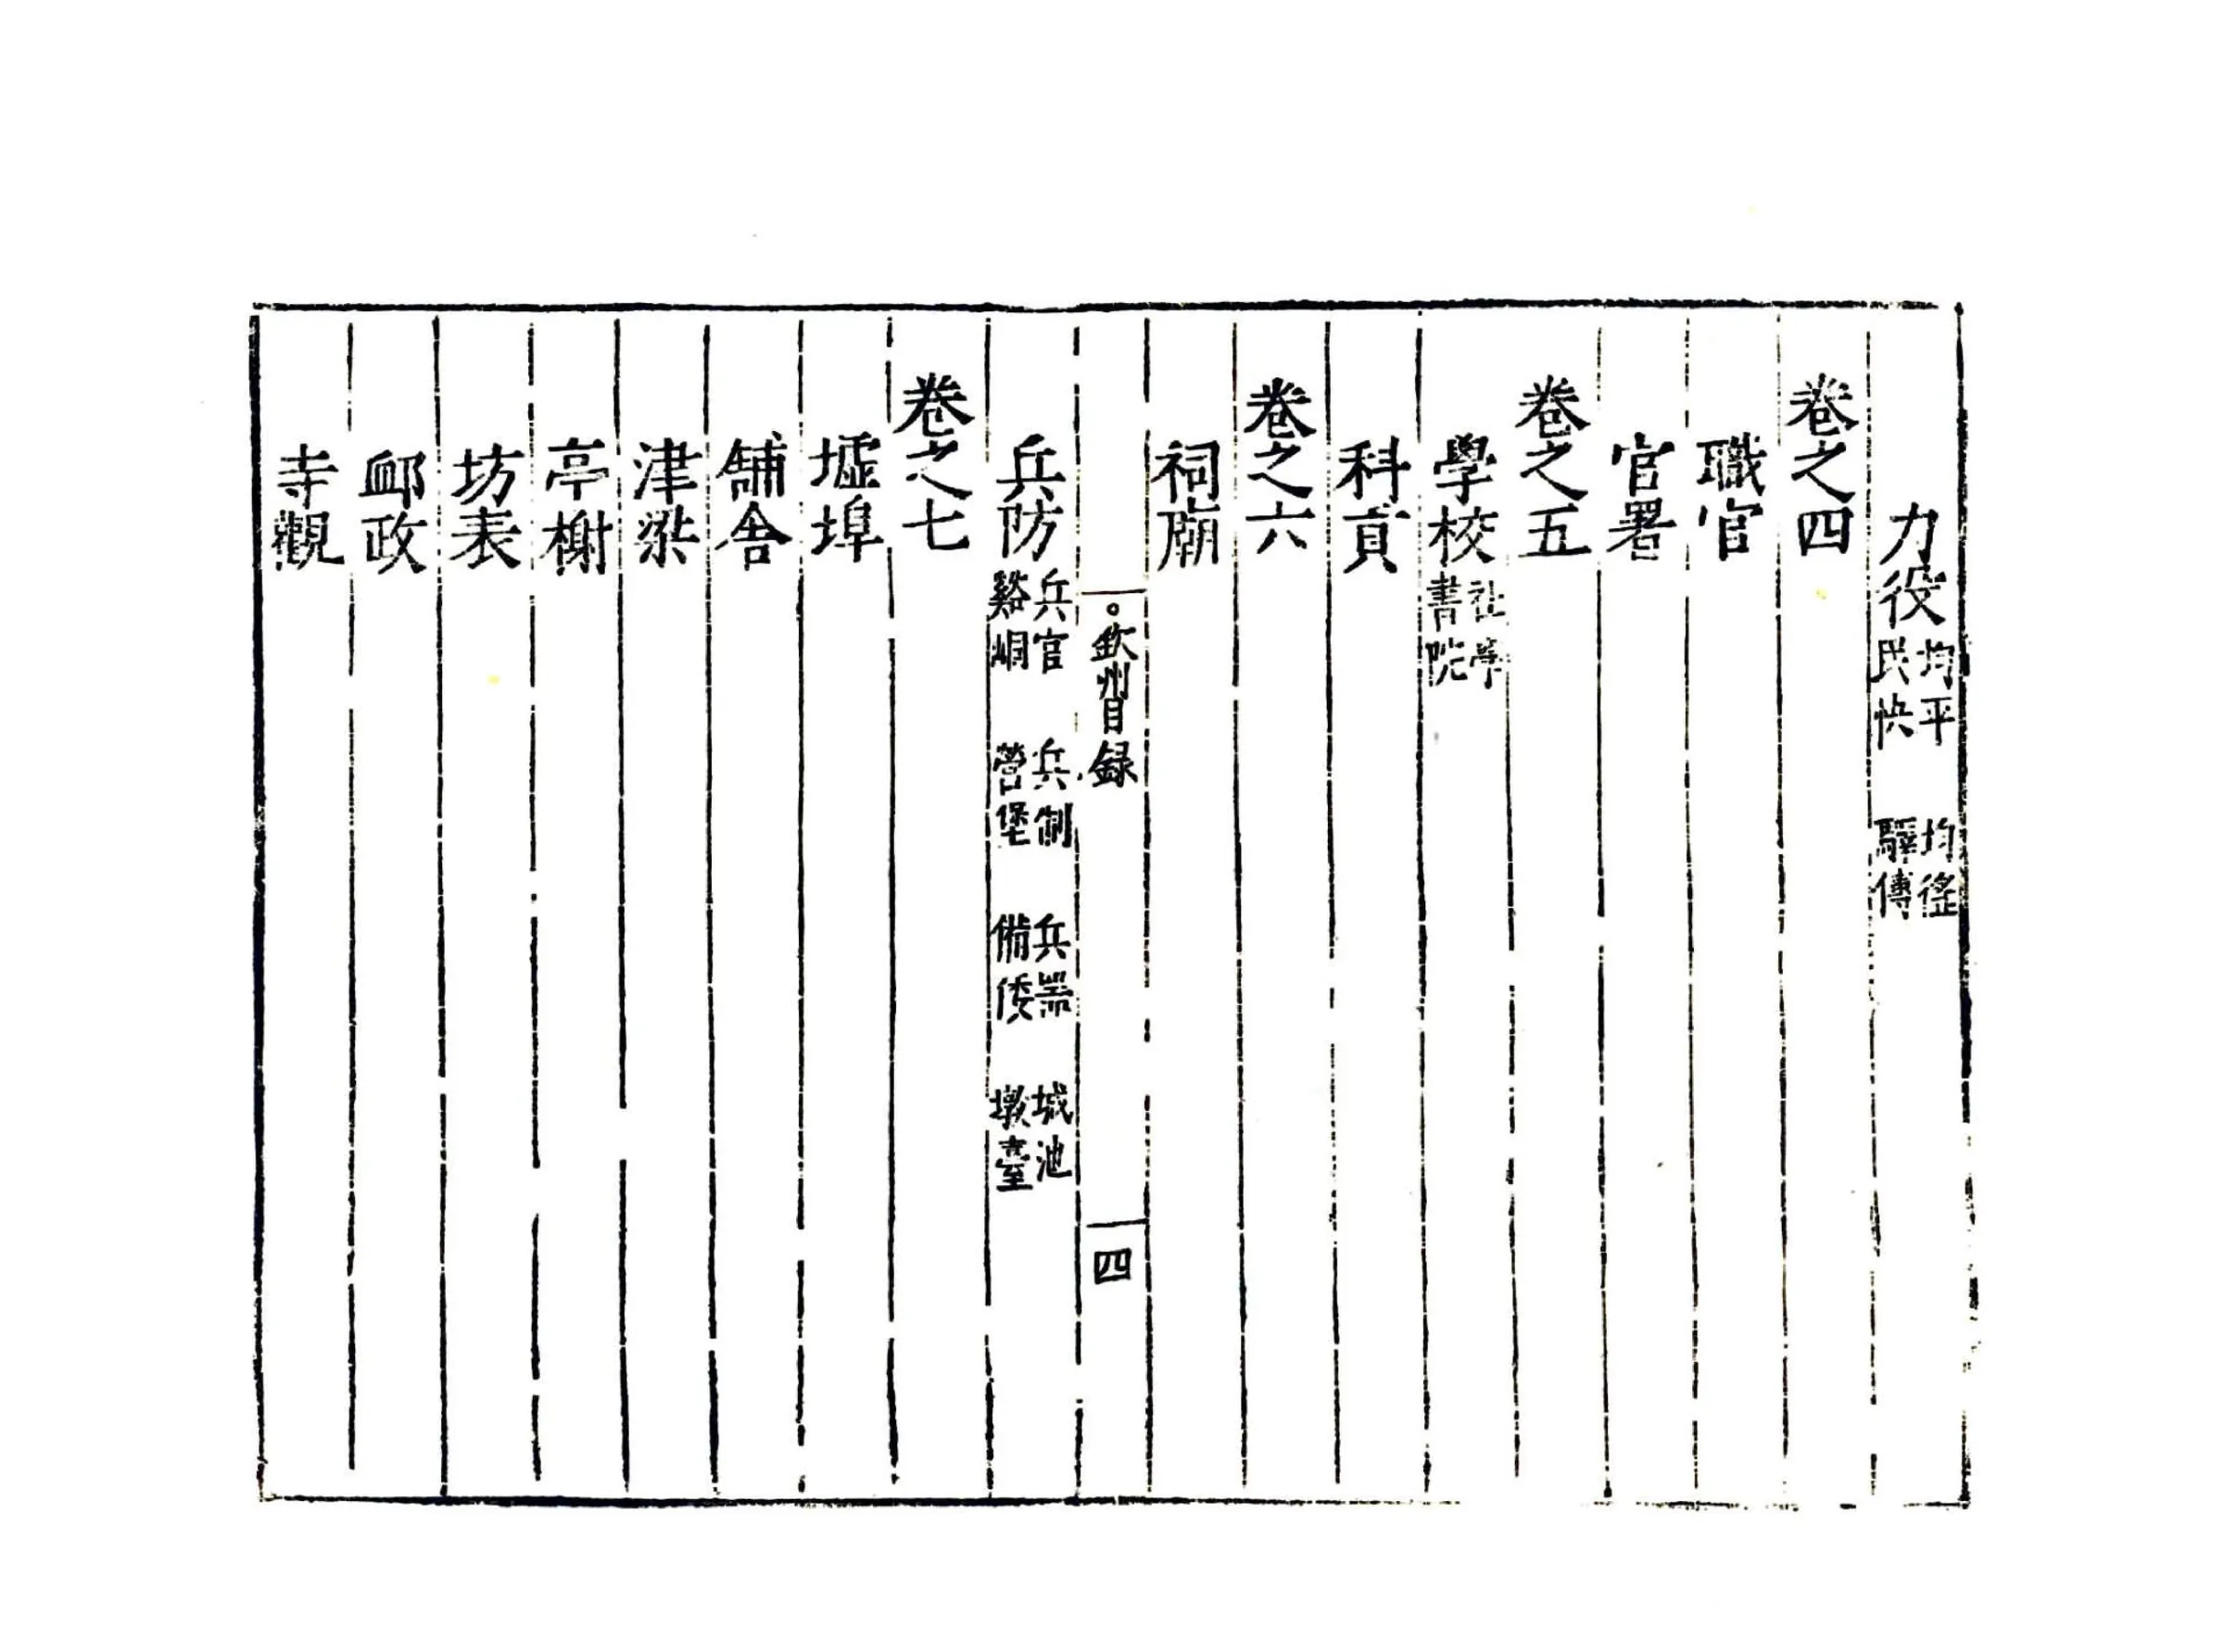 力役 均平 均徭 民快 驛傳
卷之四
職官
官署
卷之五
學校 社學 書院
科貢
卷之六
祠廟
欽州目録 四
兵防 兵官 兵制 兵器 城池 谿峒 營堡 備倭 墩臺
卷之七
墟埠
舖舍
津梁
亭榭
坊表
䘏政
寺觀